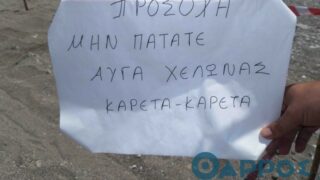 ΠΡΟΣΟΧΗ
ΜΗΝ ΠΑΤΑΤΕ
ΑΥΓΑ ΧΕΛΩΝΑΣ
ΚΑΡΕΤΑ-ΚΑΡΕΤΑ
ΘΑΡΡΟΣ